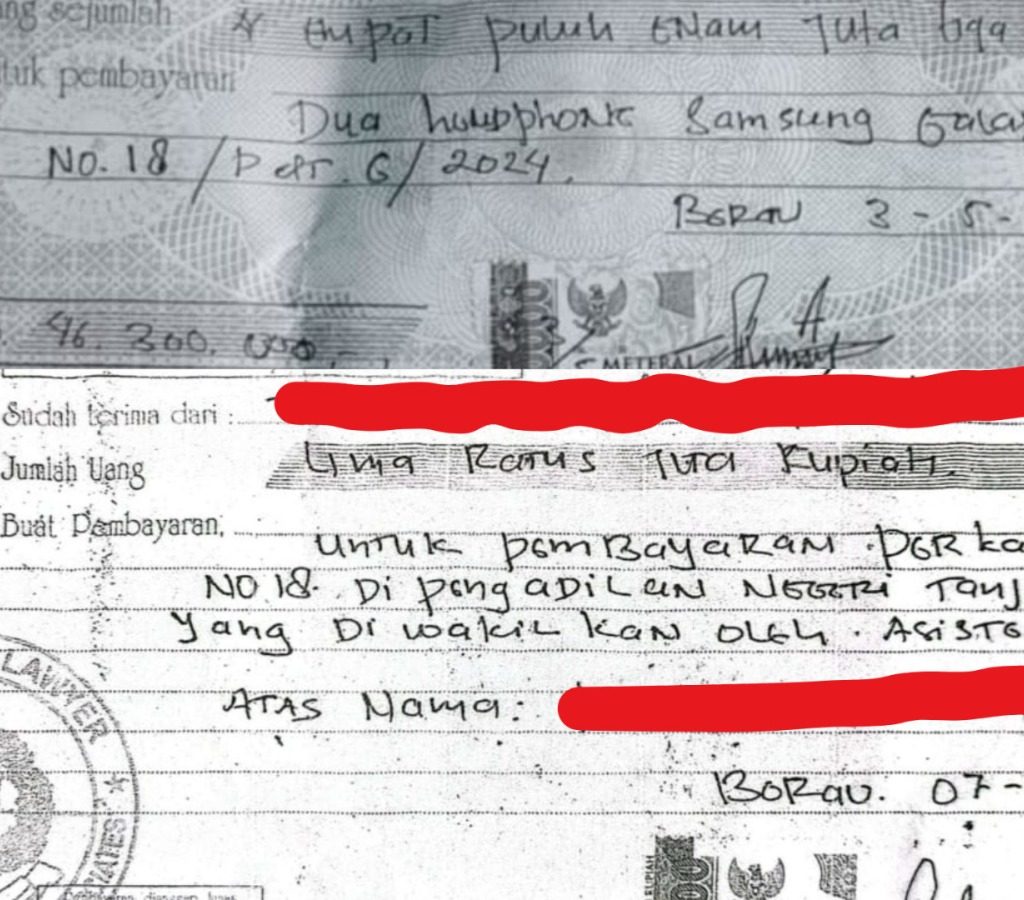 ng sejumlah Empat puluh Enam Juta tiga
tuk pembayaran
Dua handphone Samsung Gala
NO. 18 / Pdt. G / 2024.
Berau 3 - 5 -
46. 300. 000
METERAI
Sudah terima dari :
Jumlah Uang Lima Ratus Juta Rupiah.
Buat Pembayaran, Untuk pemBayaRan perka
NO 18. Di pengaDiLan NEGERi Tanj
Yang Di wakiL kan OLeh. ASiSTe
ATAS Nama:
LAWYER
Berau. 07 -
RUPIAH